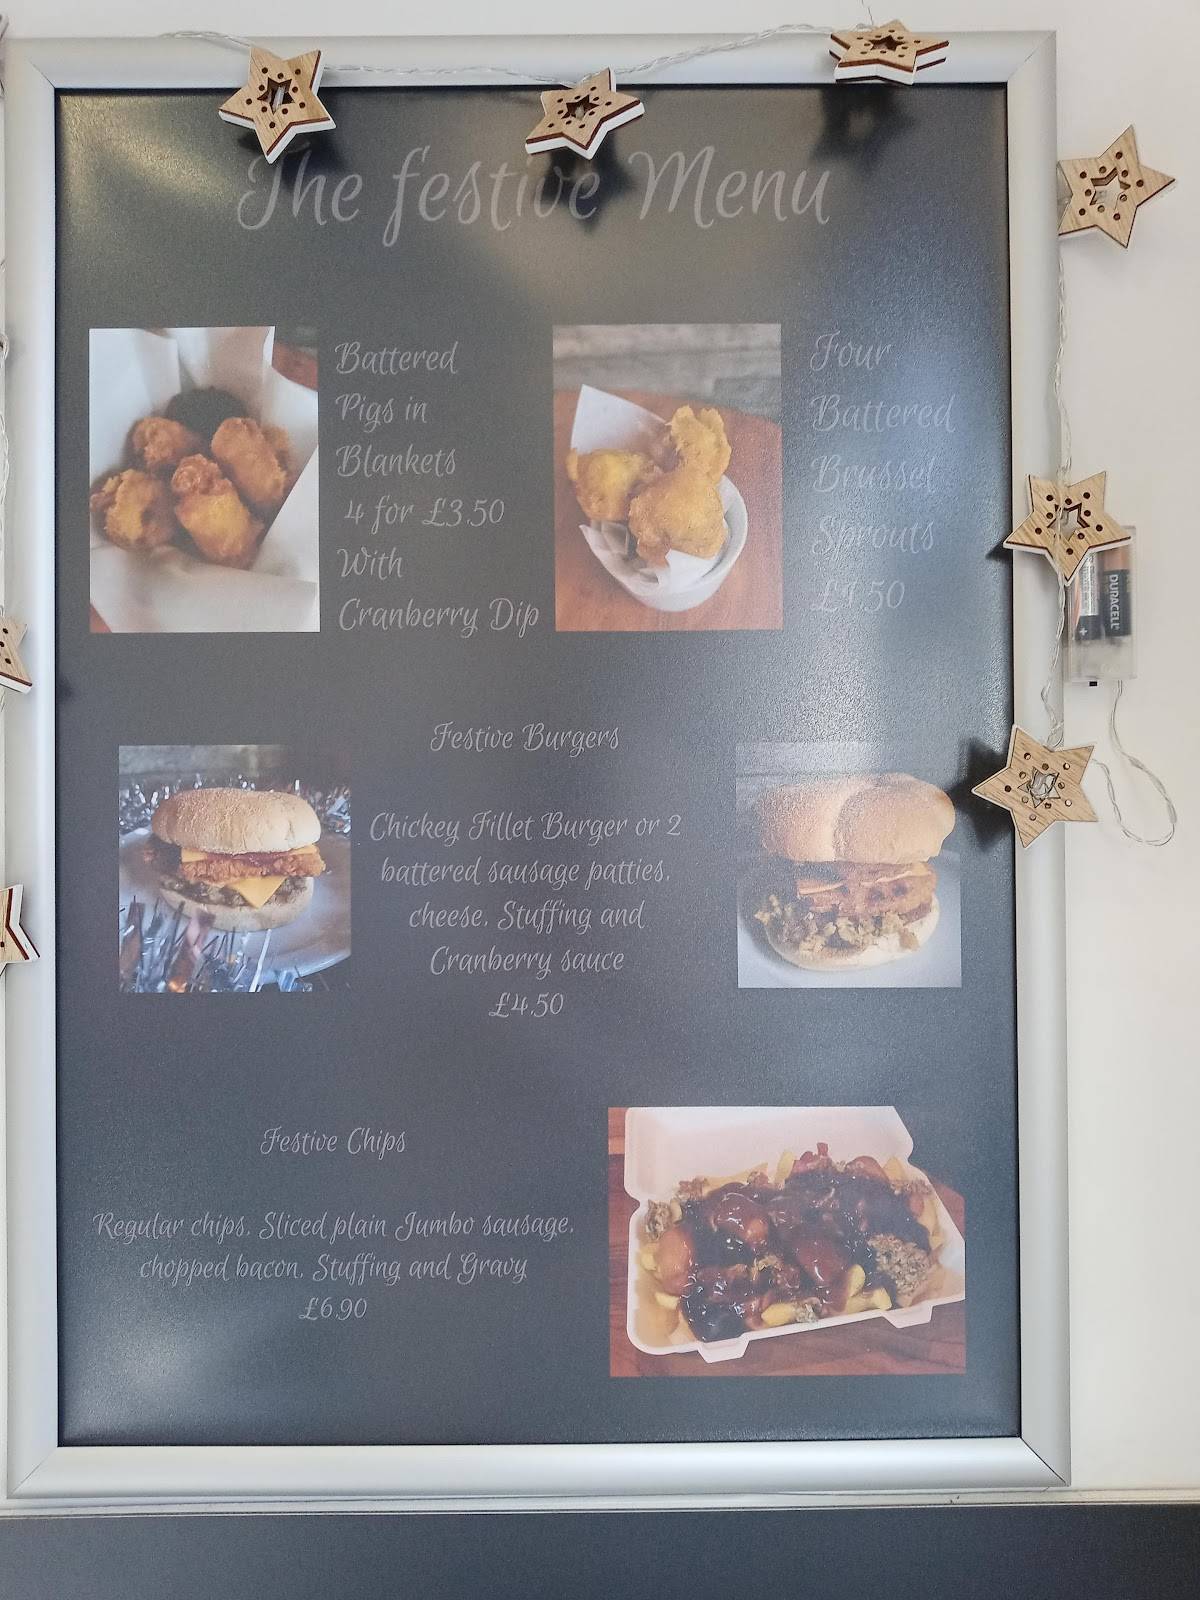 The festive Menu
Battered
Pigs in
Blankets
4 for £3.50
With
Cranberry Dip
Four
Battered
Brussel
Sprouts
£1.50
Festive Burgers
Chickey Fillet Burger or 2
battered sausage patties,
cheese, Stuffing and
Cranberry sauce
£4.50
Festive Chips
Regular chips, Sliced plain Jumbo sausage,
chopped bacon, Stuffing and Gravy
£6.90
DURACELL
+